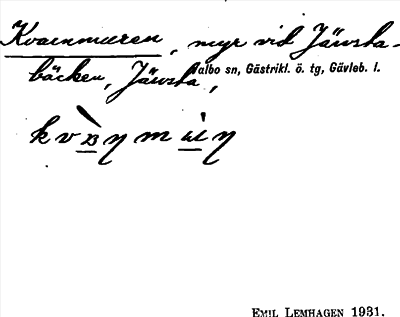 Kvarnmuren, myr vid Järvsta-
bäcken, Järvsta,
Valbo sn, Gästrikl. ö. tg, Gävleb. l.
EMIL LEMHAGEN 1931.